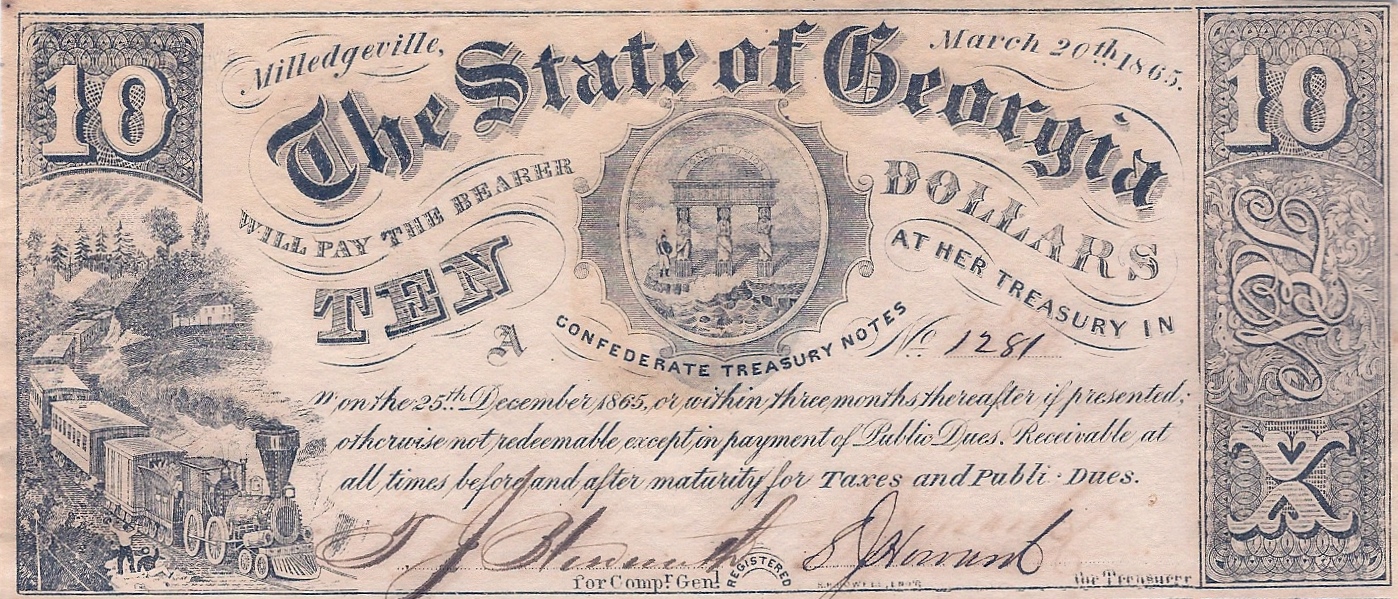 10
Milledgeville,
March 20th 1865.
10
The State of Georgia
WILL PAY THE BEARER
TEN
DOLLARS
AT HER TREASURY IN
CONFEDERATE TREASURY NOTES
A
No. 1281
on the 25th December, 1865, or within three months thereafter if presented;
otherwise not redeemable except in payment of Public Dues. Receivable at
all times before and after maturity for Taxes and Publi Dues.
for Compr. Genl.
REGISTERED
the Treasurer
X